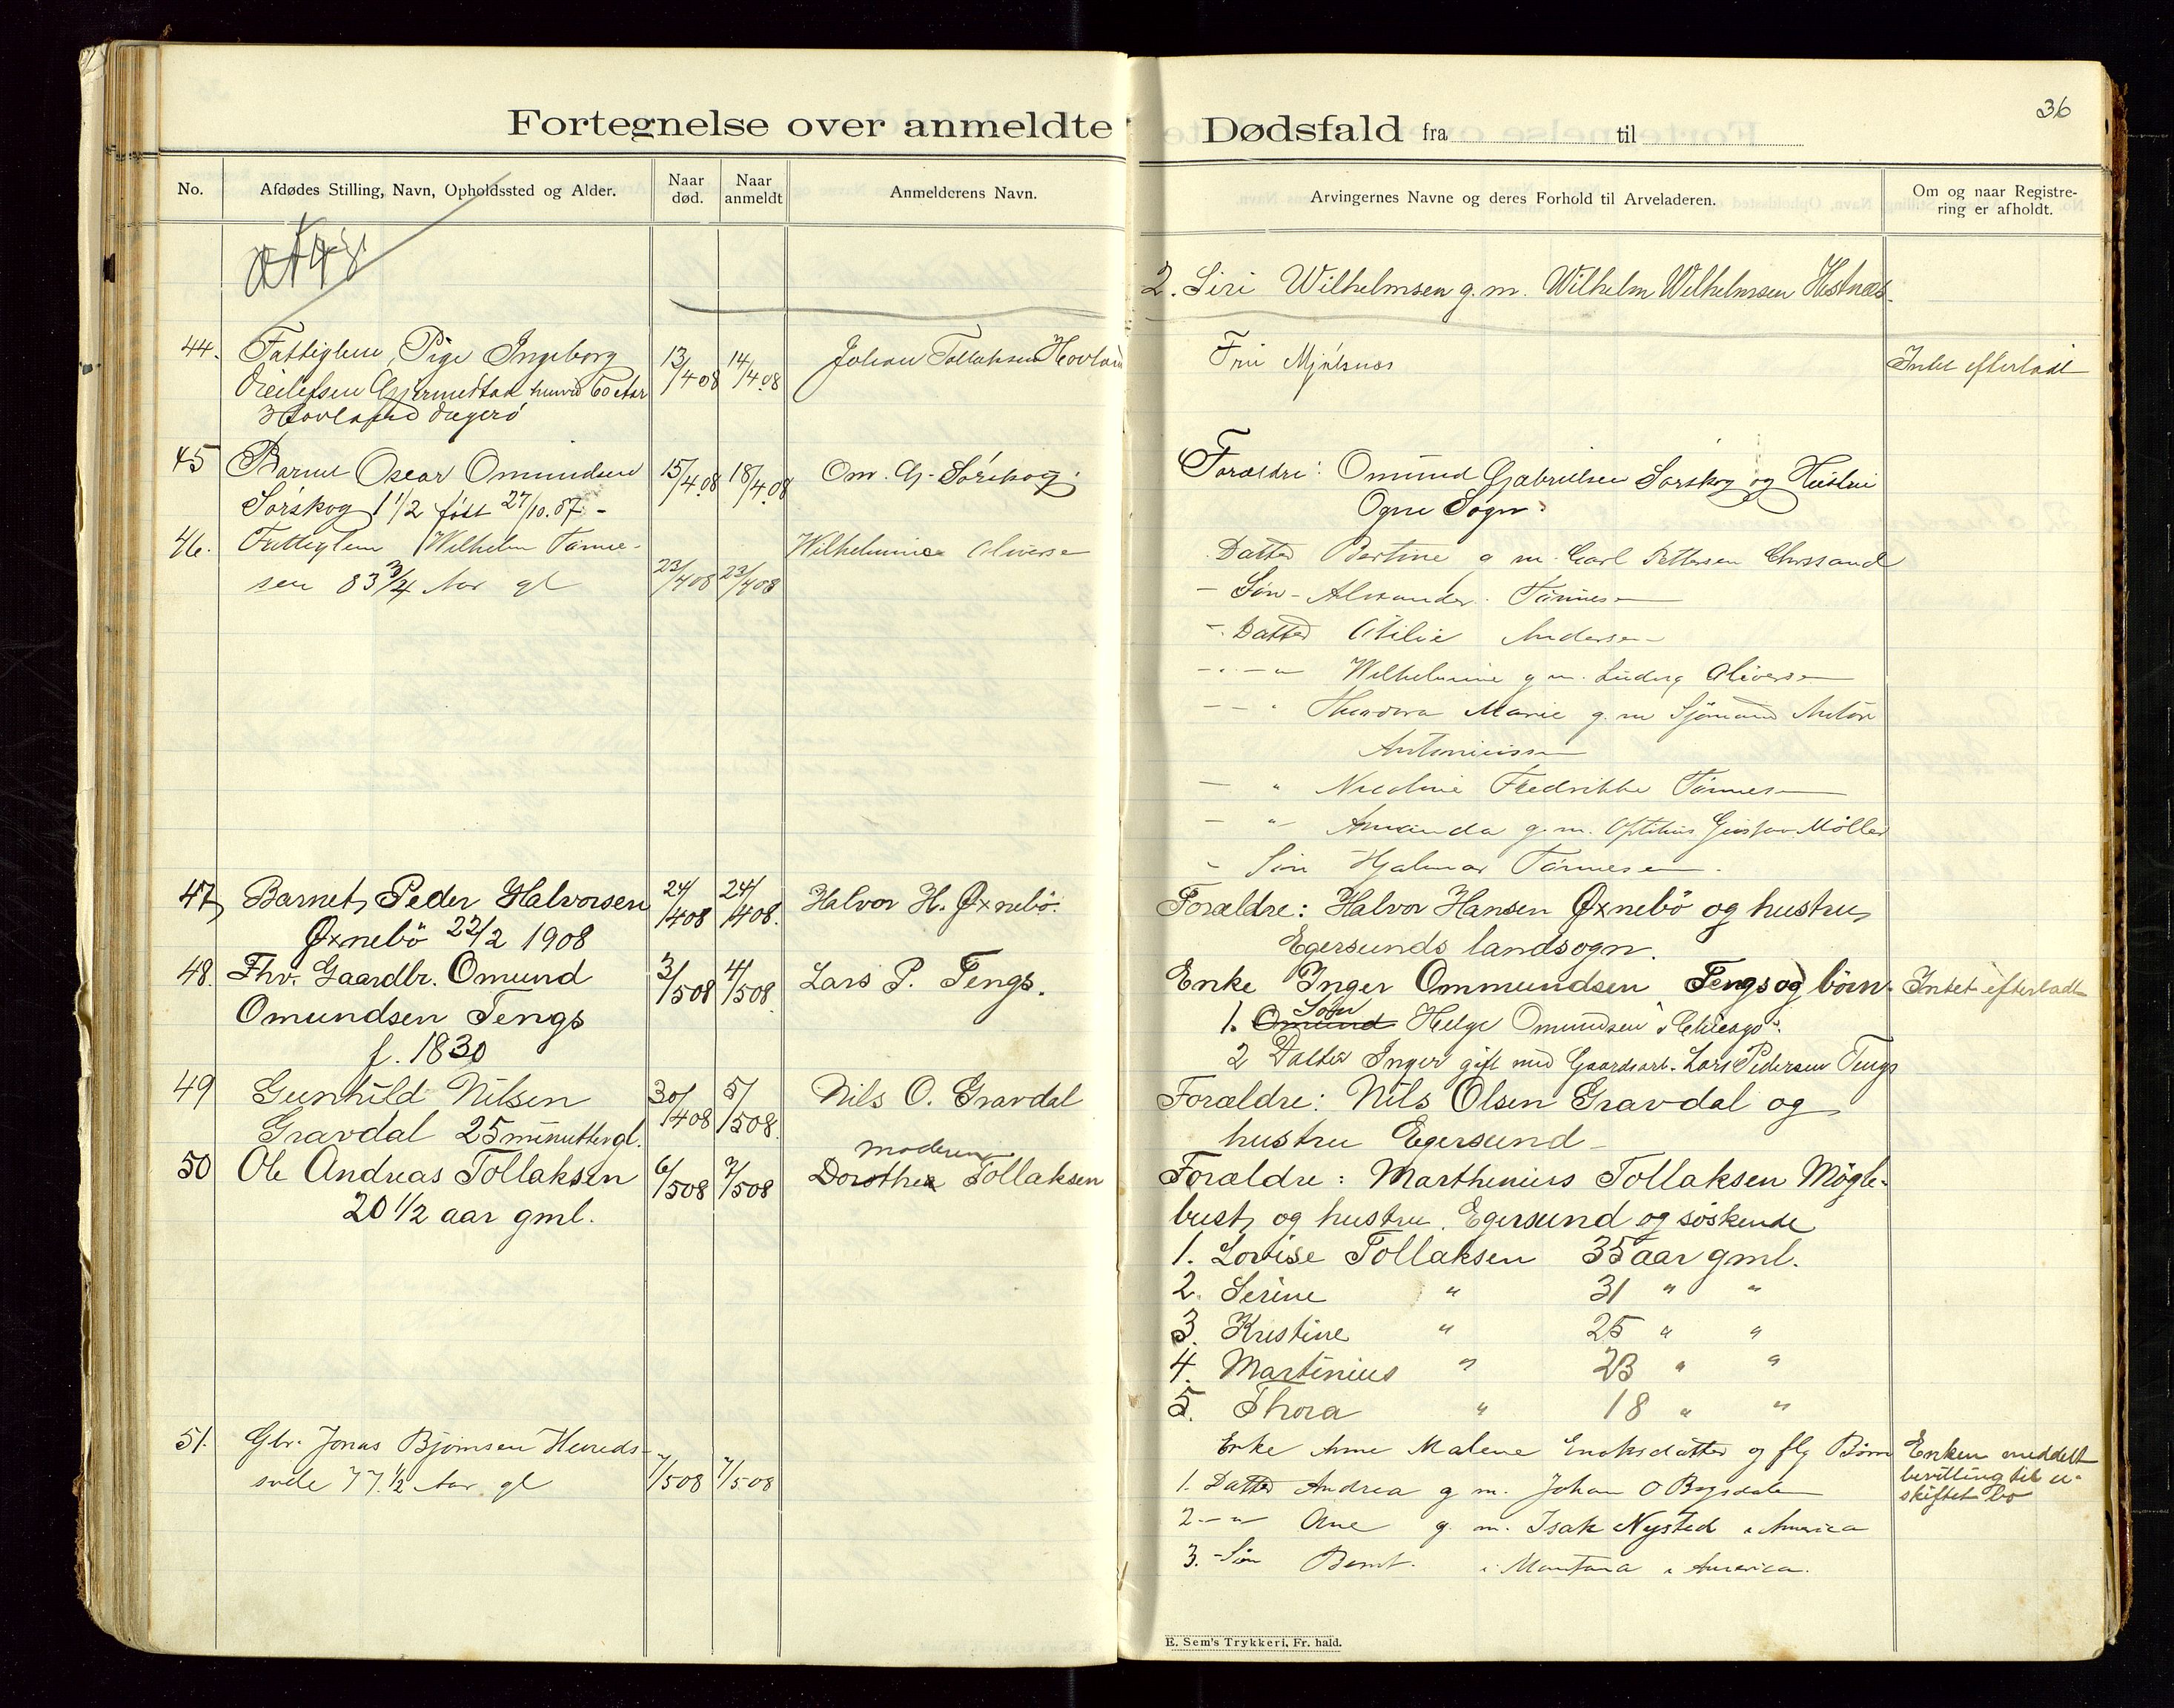 36
Fortegnelse over anmeldte Dødsfald fra til
No.
Afdødes Stilling, Navn, Opholdssted og Alder.
Naar død.
Naar anmeldt
Anmelderens Navn.
Arvingernes Navne og deres Forhold til Arveladeren.
Om og naar Registre-
ring er afholdt.
2. Siri Wilhelmsen g. m. Wilhelm Wilhelmsen Hestnæs
44. Fattiglem, Pige Ingeborg
60 Aar
Hovland
13/4 08
14/4 08
Johan Tollaksen Hovland
Intet efterladt
45 Barnet Oscar Omundsen
Sørskog 1 1/2 født 27/10.07 -
15/4.08
18/4.08
Om. G. Sørskog.
Forældre: Omund Gabrielsen Sørskog og Hustru
Ogne Sogn.
46. Fattiglem Wilhelm Tønne-
sen 83 3/4 Aar gl
23/4 08
23/4 08
Wilhelmine Olivers
Datter Bertine g m. Carl Pettersen Chrssand
- Søn - Alexander. Tønnes
-. Datter Otilie Anders
-. - " Wilhelmine g m. Ludvig Olivers
- - " Theodora Marie g. m Sjømand Anton
Antoniuss
- " Nicoline Fredrikke Tønnes
- " Amanda g. m. Optikus Gustav Møller
- Søn Hjalmar Tønnesen.
47, Barnet, Peder Halvorsen
Øxnebö 22/2 1908
24/4 08
24/4 08.
Halvor H. Øxnebö.
Forældre: Halvor Hansen Øxnebö og hustru,
Egersunds landsogn.
48. Fhv. Gaardbr. Omund
Omundsen Tengs
f. 1830
3/5 08
4/5 08
Lars P. Tengs.
Enke Inger Ommundsen Tengs og börn.
1. Omund Søn Helge Omundsen i Chicago.
2 Datter Inger gift med Gaardsarb. Lars Pedersen Tengs
Intet efterladt
49 Gunhild Nilsen
Gravdal 25 minutter gl.
30/4 08
5/5 08.
Nils O. Gravdal
Forældre: Nils Olsen Gravdal og
hustru Egersund -
50 Ole Andreas Tollaksen
20 1/2 aar gml.
6/5 08
7/5 08
moderen
Dorothea Tollaksen
Forældre: Marthinius Tollaksen Mögle-
bust, og hustru, Egersund og söskende
1. Lovise Tollaksen 35 aar gml.
2. Serine " 31 " "
3. Kristine " 25 " "
4. Martinius " 23 " "
5. Thora " 18 " "
51. Gbr. Jonas Bjørnsen Hereds-
vele 77 1/2 Aar gl
7/5 08
7/5 08
Enke Anne Malene Enoksdatter og flg Børn
1. Datter Andrea g m. Johan O
2 - " Ane g. m. Isak Nysted i America
3. - Søn Bernt. i Montana i America.
Enken meddelt
bevilling til u-
skiftet bo
E. Sem's Trykkeri, Fr. hald.